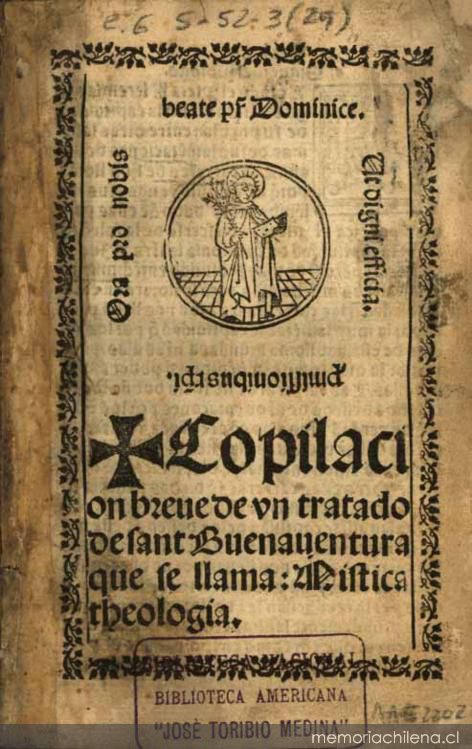 e.6 5-52-3(29)
Ora pro nobis
beate pr̄ Dominice.
Ut digni efficia.
pmissionibus xp̄i.
✠ Copilaci
on breue de vn tratado
de sant Buenauentura
que se llama: Mistica
theologia.
BIBLIOTECA NACIONAL
BIBLIOTECA AMERICANA
"JOSÉ TORIBIO MEDINA"
memoriachilena.cl